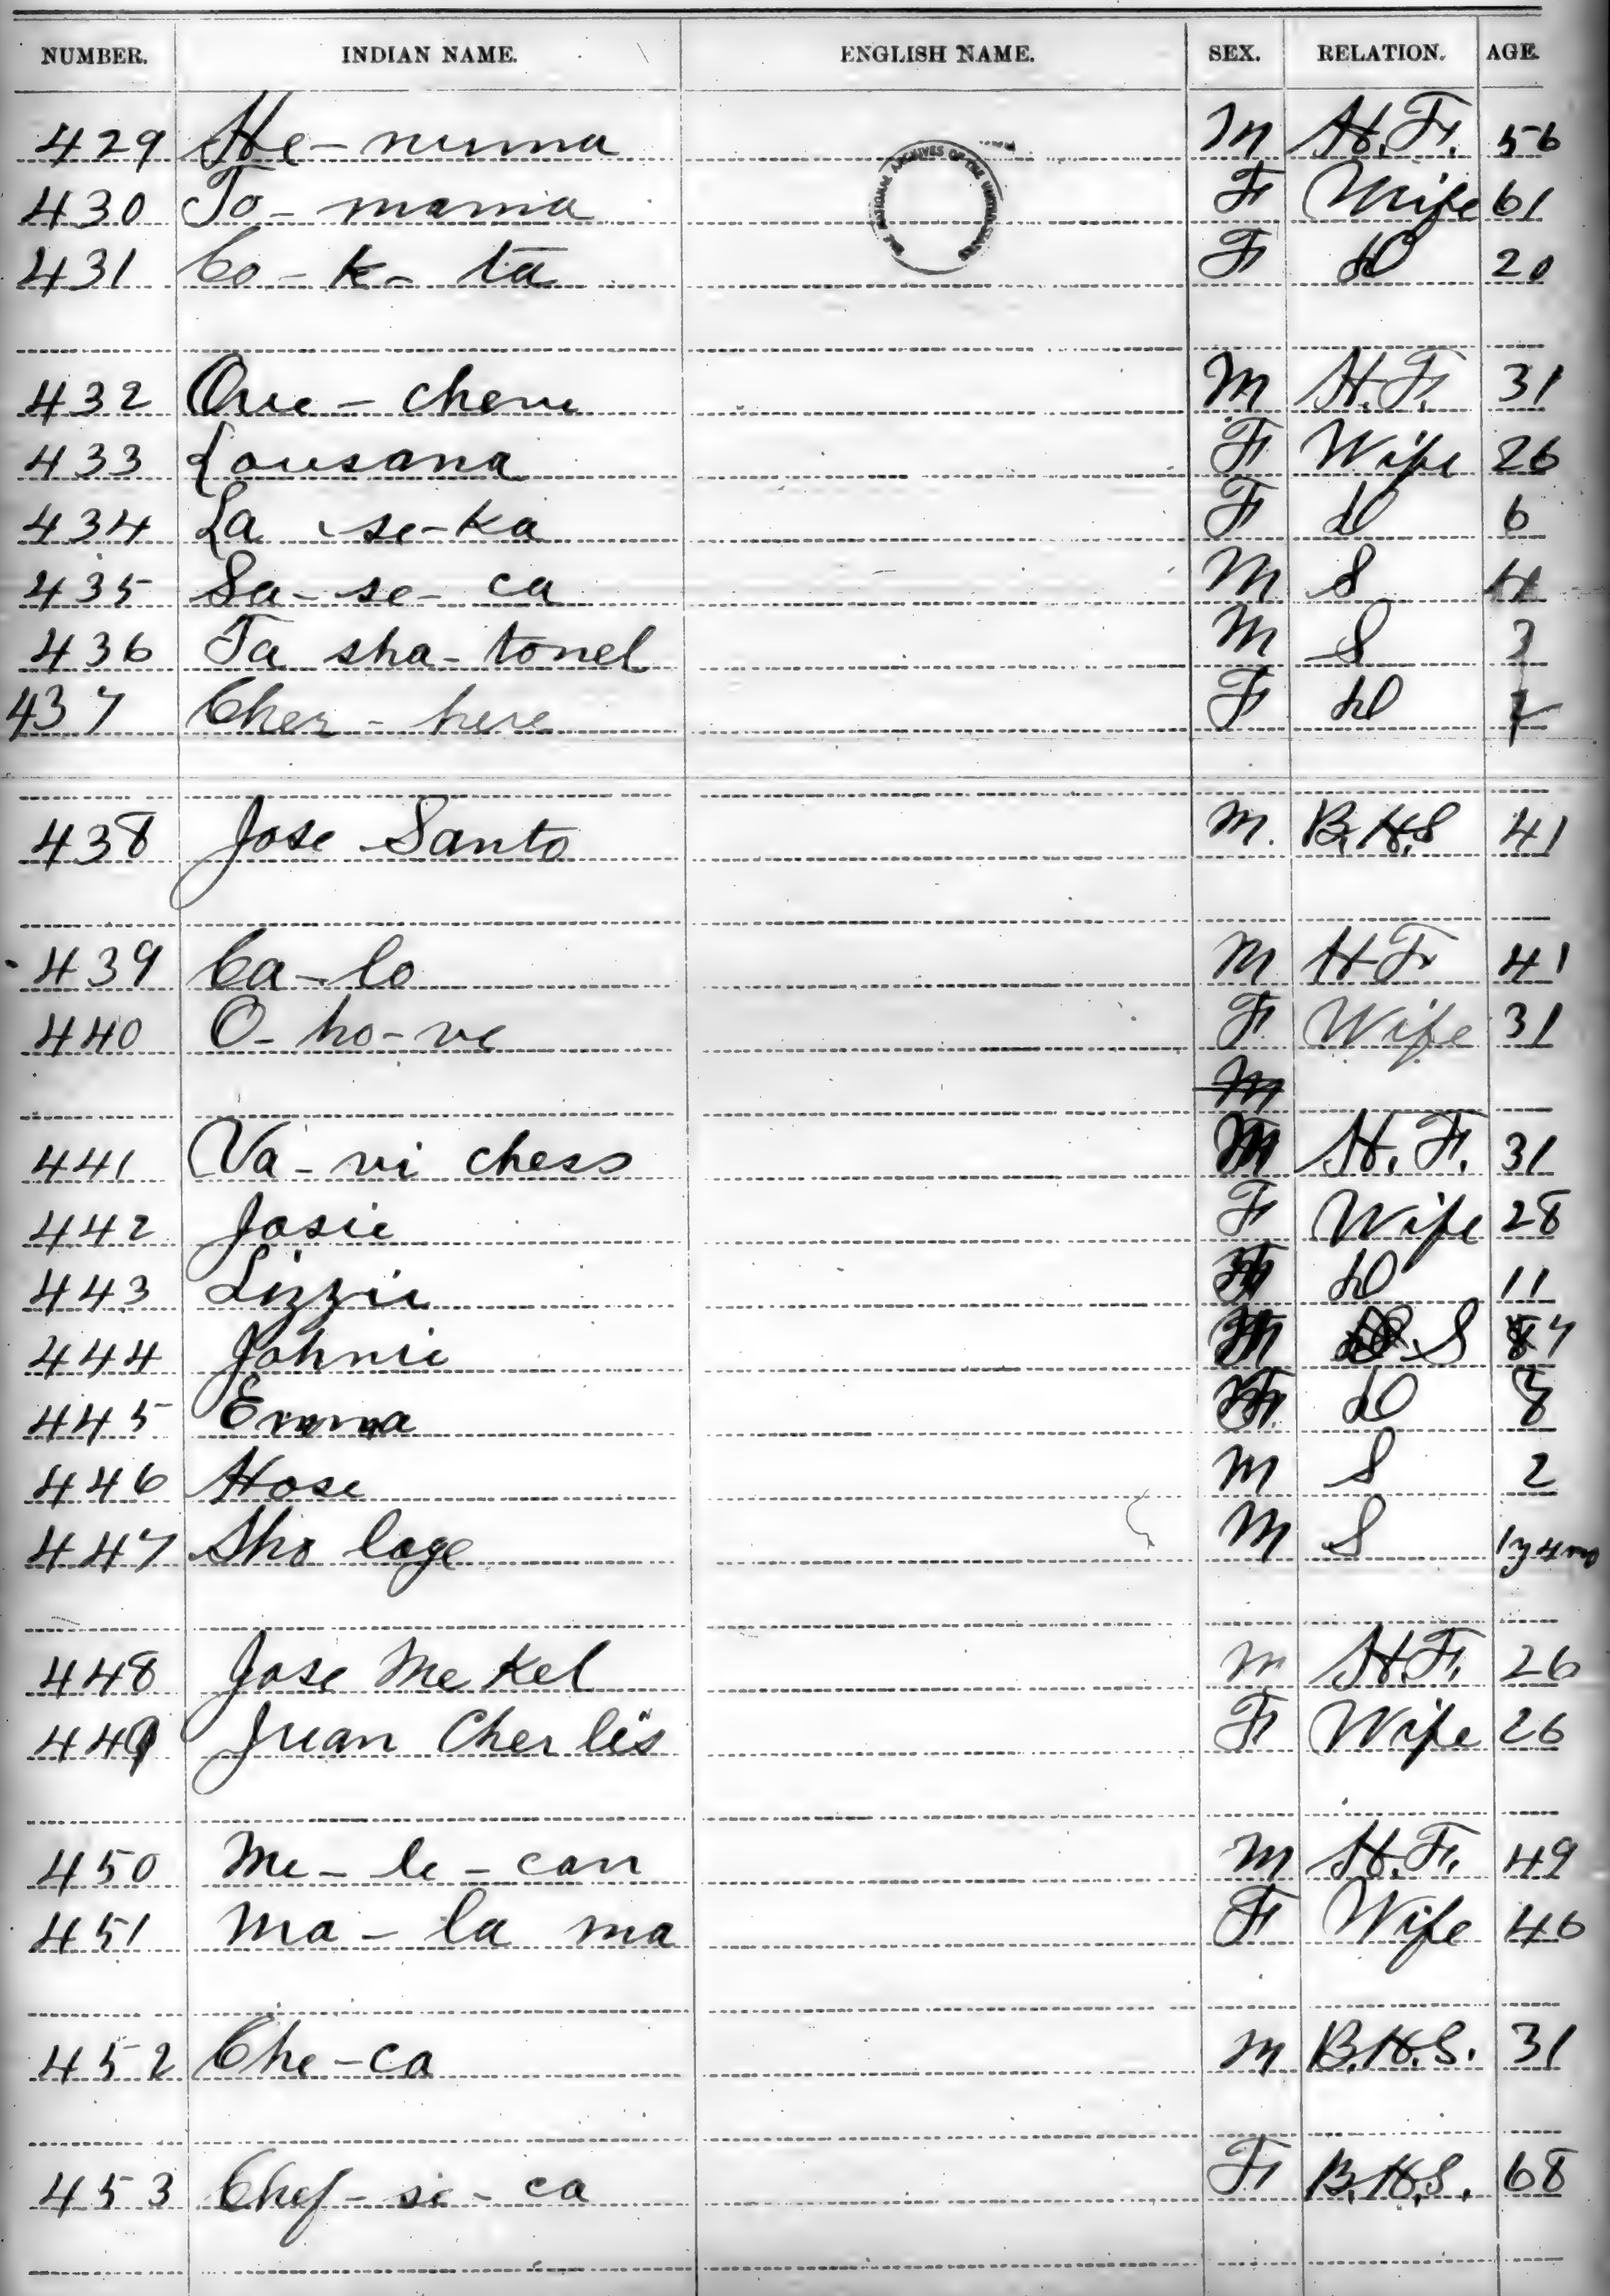 NUMBER. INDIAN NAME. ENGLISH NAME. SEX. RELATION. AGE.
THE NATIONAL ARCHIVES OF THE UNITED STATES
429 He - nunna M H.F. 56
430 To - mama F Wife 61
431 Co - k - ta F D 20
432 Que - cheve M H.F. 31
433 Lousana F Wife 26
434 La se - ka F D 6
435 Sa - se - ca M S 4
436 Ta sha - tonel M S
437 Cher - here F D
438 Jose Santo M. B.H.S 41
439 Ca - lo M H F 41
440 O - ho - ve F Wife 31
M
441 Va - vi chess M H.F. 31
442 Josie F Wife 28
443 Lizzie F D 11
444 Johnie M S 7
445 Emma F D
446 Hose M S 2
447 Sho loge M S 1y 4mo
448 Jose Me Kel M H.F. 26
449 Juan Cher lis F Wife 26
450 Me - le - can M H.F. 49
451 Ma - la ma F Wife 46
452 Che - ca M B.H.S. 31
453 Chef - si - ca F B.H.S. 68